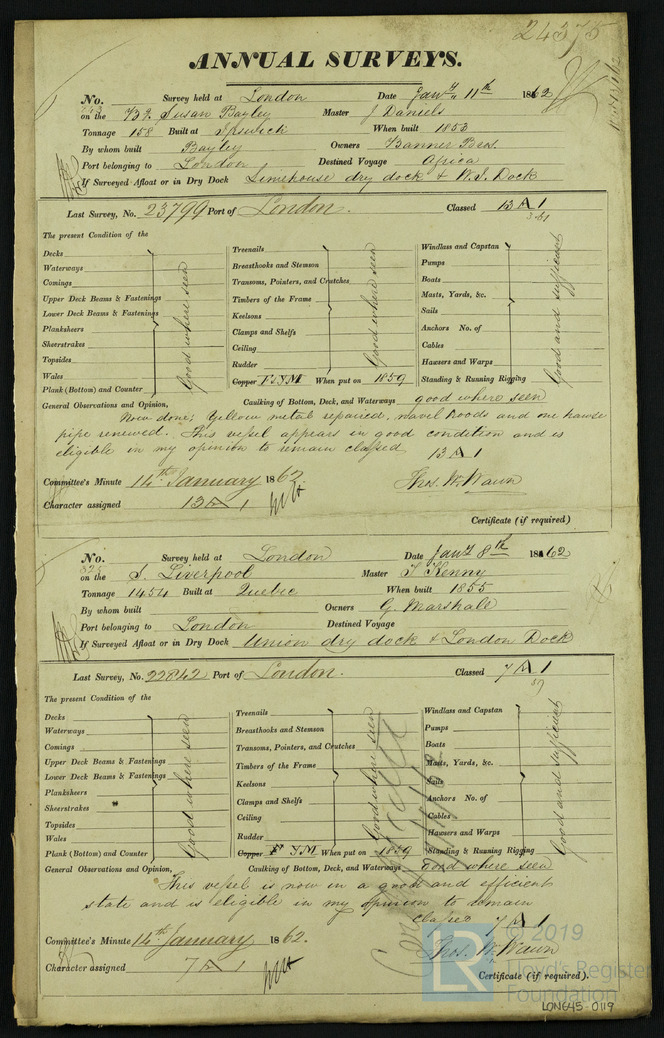 24375
ANNUAL SURVEYS.
No. Survey held at London Date Jany 11th 1862
on the Susan Bayley Master J Daniels
Tonnage 158 Built at Ipswich When built 1853
By whom built Bayley Owners Banner Bros.
Port belonging to London Destined Voyage Africa
If Surveyed Afloat or in Dry Dock Limehouse dry dock & W.I. Dock
Last Survey, No. 23799 Port of London. Classed 13 A 1
The present Condition of the
Decks
Waterways
Comings
Upper Deck Beams & Fastenings
Lower Deck Beams & Fastenings
Planksheers
Sheerstrakes
Topsides
Wales
Plank (Bottom) and Counter
Good where seen
Treenails
Breasthooks and Stemson
Transoms, Pointers, and Crutches
Timbers of the Frame
Keelsons
Clamps and Shelfs
Ceiling
Rudder
Copper F Y M When put on 1859
Good where seen
Windlass and Capstan
Pumps
Boats
Masts, Yards, &c.
Sails
Anchors No. of
Cables
Hawsers and Warps
Standing & Running Rigging
Good and sufficient
General Observations and Opinion, Caulking of Bottom, Deck, and Waterways good where seen
Now done; Yellow metal repaired, navel hoods and one hawse
pipe renewed. This vessel appears in good condition and is
eligible in my opinion to remain classed 13 A 1
Committee's Minute 14th January 1862. Thos. W. Wawn
Character assigned 13 A 1
Certificate (if required)
No. Survey held at London Date Jany 8th 1862
on the S. Liverpool Master T Kenny
Tonnage 1454 Built at Quebec When built 1855
By whom built Owners G. Marshall
Port belonging to London Destined Voyage
If Surveyed Afloat or in Dry Dock Union dry dock & London Dock
Last Survey, No. 22842 Port of London. Classed 7 A 1
57
The present Condition of the
Decks
Waterways
Comings
Upper Deck Beams & Fastenings
Lower Deck Beams & Fastenings
Planksheers
Sheerstrakes
Topsides
Wales
Plank (Bottom) and Counter
Good where seen
Treenails
Breasthooks and Stemson
Transoms, Pointers, and Crutches
Timbers of the Frame
Keelsons
Clamps and Shelfs
Ceiling
Rudder
Copper F Y M When put on 1859
Good where seen
Windlass and Capstan
Pumps
Boats
Masts, Yards, &c.
Sails
Anchors No. of
Cables
Hawsers and Warps
Standing & Running Rigging
Good and sufficient
General Observations and Opinion, Caulking of Bottom, Deck, and Waterways Good where seen
This vessel is now in a good and efficient
state and is eligible in my opinion to remain
classed 7 A 1
Committee's Minute 14th January 1862. Thos. W. Wawn
Character assigned 7 A 1
Certificate (if required).
LR © 2019
Lloyd's Register
Foundation
LON645-0119